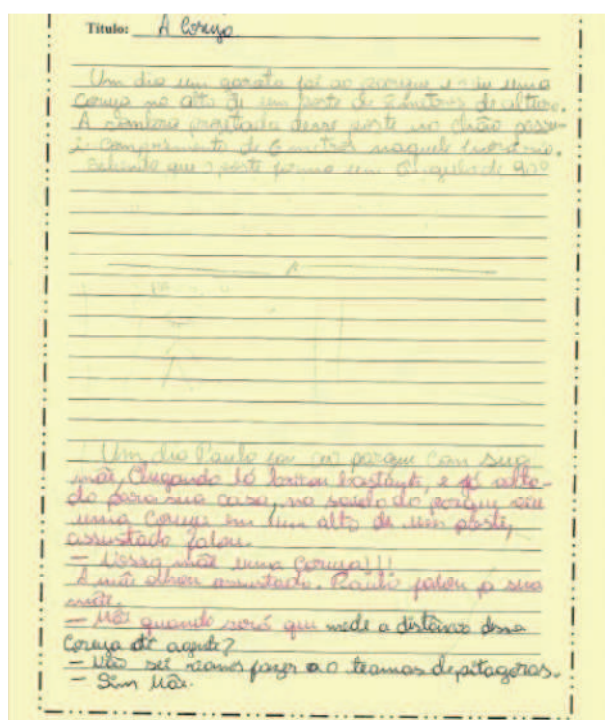 Título: A Coruja
Um dia um garoto foi ao parque e viu uma
Coruja no alto de um poste de 2 metros de altura.
A sombra projetada desse poste no chão possu-
i comprimento de 6 metros naquele horário.
Sabendo que o poste forma um ângulo de 90º
Um dia Paulo foi ao parque com sua
mãe, Chegando lá brincou bastante, e já
do para sua casa, na saída do parque viu
uma Coruja em um alto de um poste,
assustado falou.
- Nossa mãe uma Coruja!!!
A mãe olhou assustado. Paulo falou p sua
mãe.
- Mãe quando será que mede a distância dessa
Coruja até agente?
- Não sei vamos fazer ao teamas de pitagoras.
- Sim Mãe.